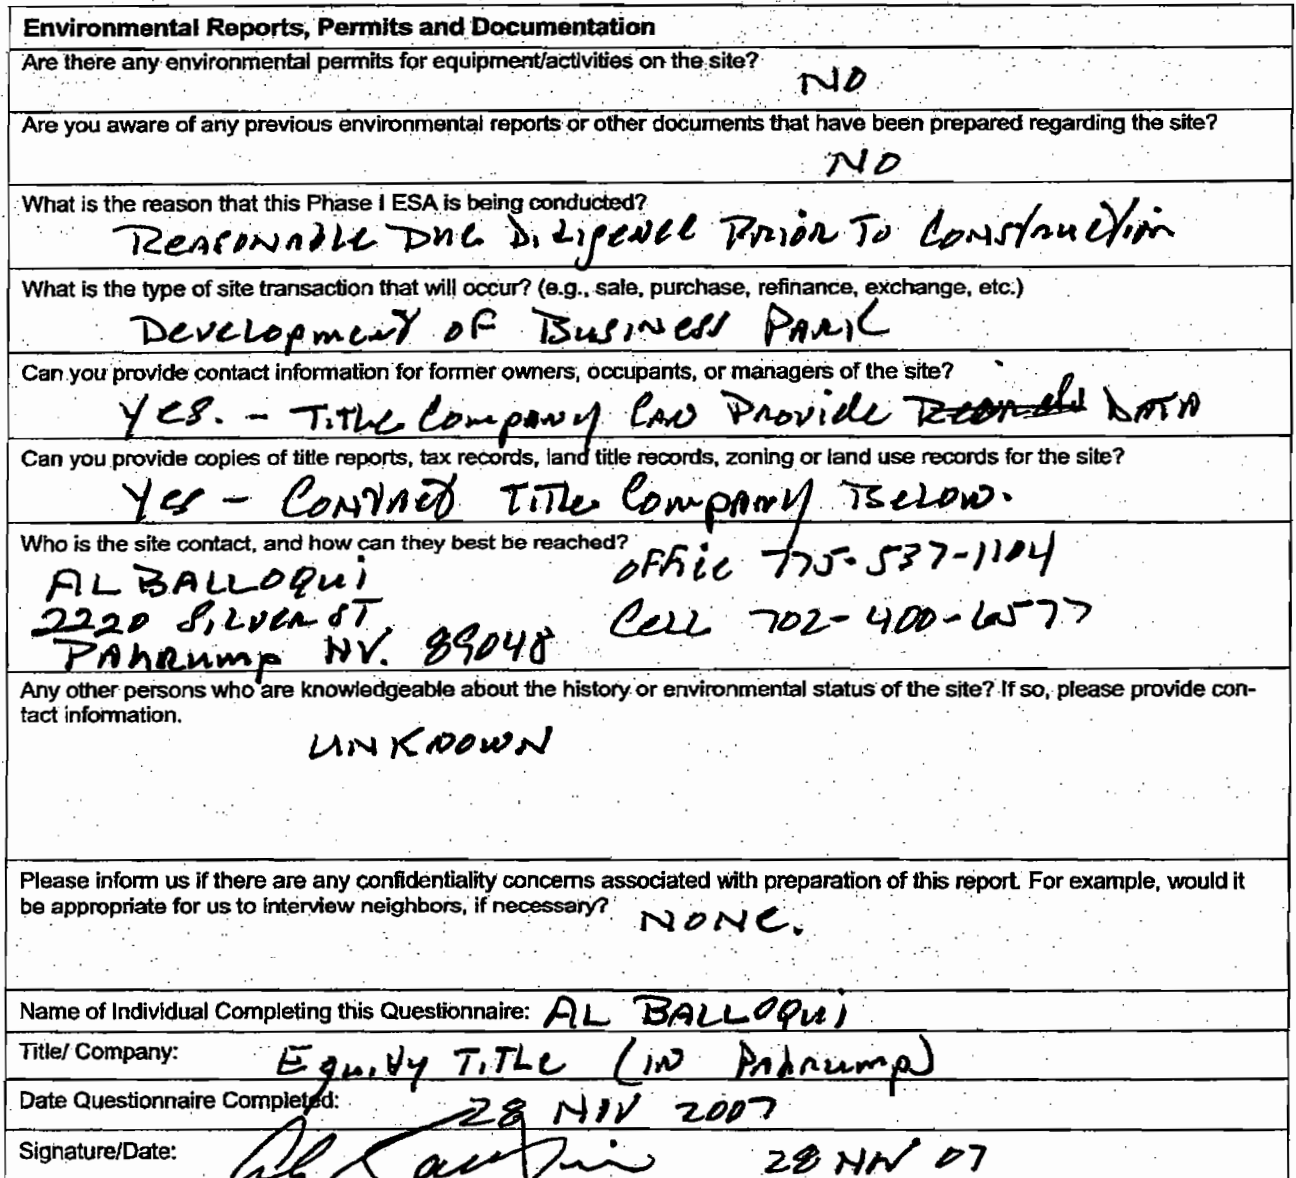 Environmental Reports, Permits and Documentation
Are there any environmental permits for equipment/activities on the site?
NO
Are you aware of any previous environmental reports or other documents that have been prepared regarding the site?
NO
What is the reason that this Phase I ESA is being conducted?
Reasonable Due Diligence Prior To Construction
What is the type of site transaction that will occur? (e.g., sale, purchase, refinance, exchange, etc.)
Development of Business Park
Can you provide contact information for former owners, occupants, or managers of the site?
Yes. - Title Company Can Provide Records DATA
Can you provide copies of title reports, tax records, land title records, zoning or land use records for the site?
Yes - Contact Title Company Below.
Who is the site contact, and how can they best be reached?
AL BALLOQUI office 775-537-1104
2220 Silver ST. Cell 702-400-6577
PAhRump NV. 89048
Any other persons who are knowledgeable about the history or environmental status of the site? If so, please provide con-
tact information.
UNKNOWN
Please inform us if there are any confidentiality concerns associated with preparation of this report. For example, would it
be appropriate for us to interview neighbors, if necessary? NONE.
Name of Individual Completing this Questionnaire: AL BALLOQUI
Title/ Company: Equity Title (in Pahrump)
Date Questionnaire Completed: 28 NOV 2007
Signature/Date: 28 NOV 07